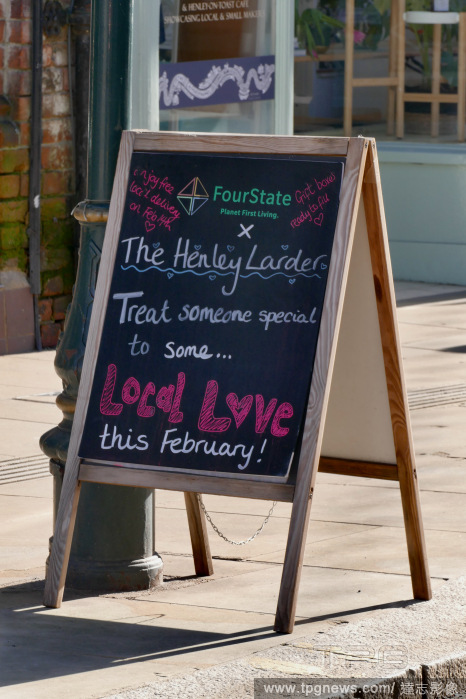 & HENLEY-ON-TOAST CAFE
SHOWCASING LOCAL & SMALL
MAKERS
LOVE
Enjoy free
local delivery
on Feb 14th
FourState
Planet First Living.
Gift bowl
ready to fill
x
The Henley Larder
Treat someone special
to some...
Local Love
this February!
www.tpgnews.com/達志影像